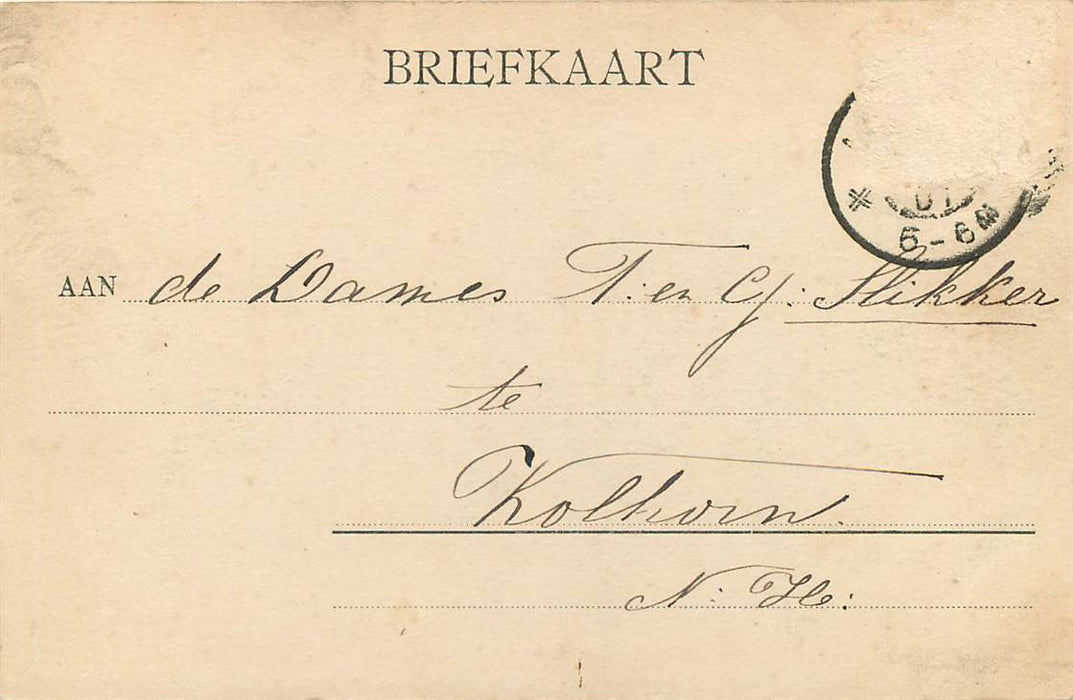 BRIEFKAART
01
5-6 N
AAN de Dames T. en G. Slikker
te
Kolhorn.
N: H: